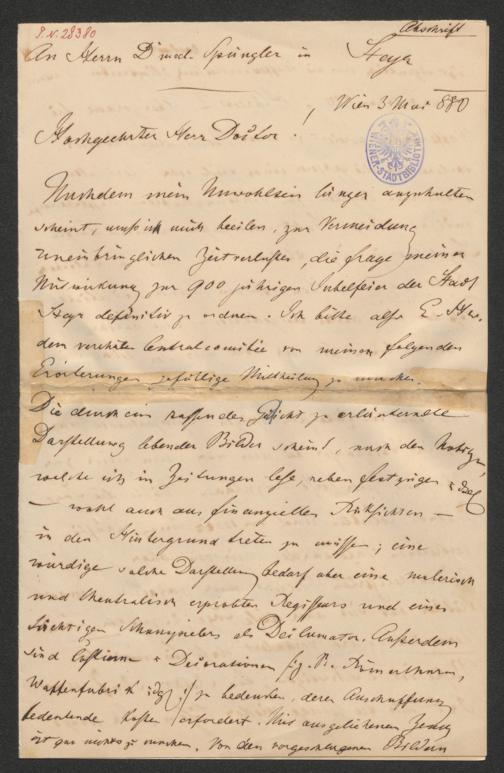 P. N. 28380
Abschrift
An Herrn Dr med. Spängler in Steyr
Wien 3 Mai 880
WIENER STADTBIBLIOTHEK
Hochgeehrter Herr Doctor!
Nachdem mein Unwohlsein länger anzuhalten
scheint, muß ich mich beeilen, zur Vermeidung
uneinbringlichen Zeitverlustes, die Frage meiner
Mitwirkung zur 900 jährigen Jubelfeier der Stadt
Steyr definitiv zu ordnen. Ich bitte also E. H
dem verehrten Centralcomitée von meinen folgenden
Erörterungen gefällige Mittheilung zu machen.
Die durch ein passendes Gedicht zu erläuternde
Darstellung lebender Bilder scheint, nach den Notizen,
welche ich in Zeitungen lese, neben Festzügen
– wohl auch aus finanziellen Rücksichten –
in den Hintergrund treten zu müssen; eine
würdige solche Darstellung bedarf aber eines malerisch
und theatralisch erprobten Regisseurs und eines
tüchtigen Schauspielers als Declamator. Außerdem
sind Costüme Decorationen (z. B. Römerthurm,
Waffenfabrik) zu bedenken, deren Anschaffung
bedeutende Kosten erfordert. Mit ausgeliehenem
ist gar nichts zu machen. Von den vorgeschlagenen Bildern